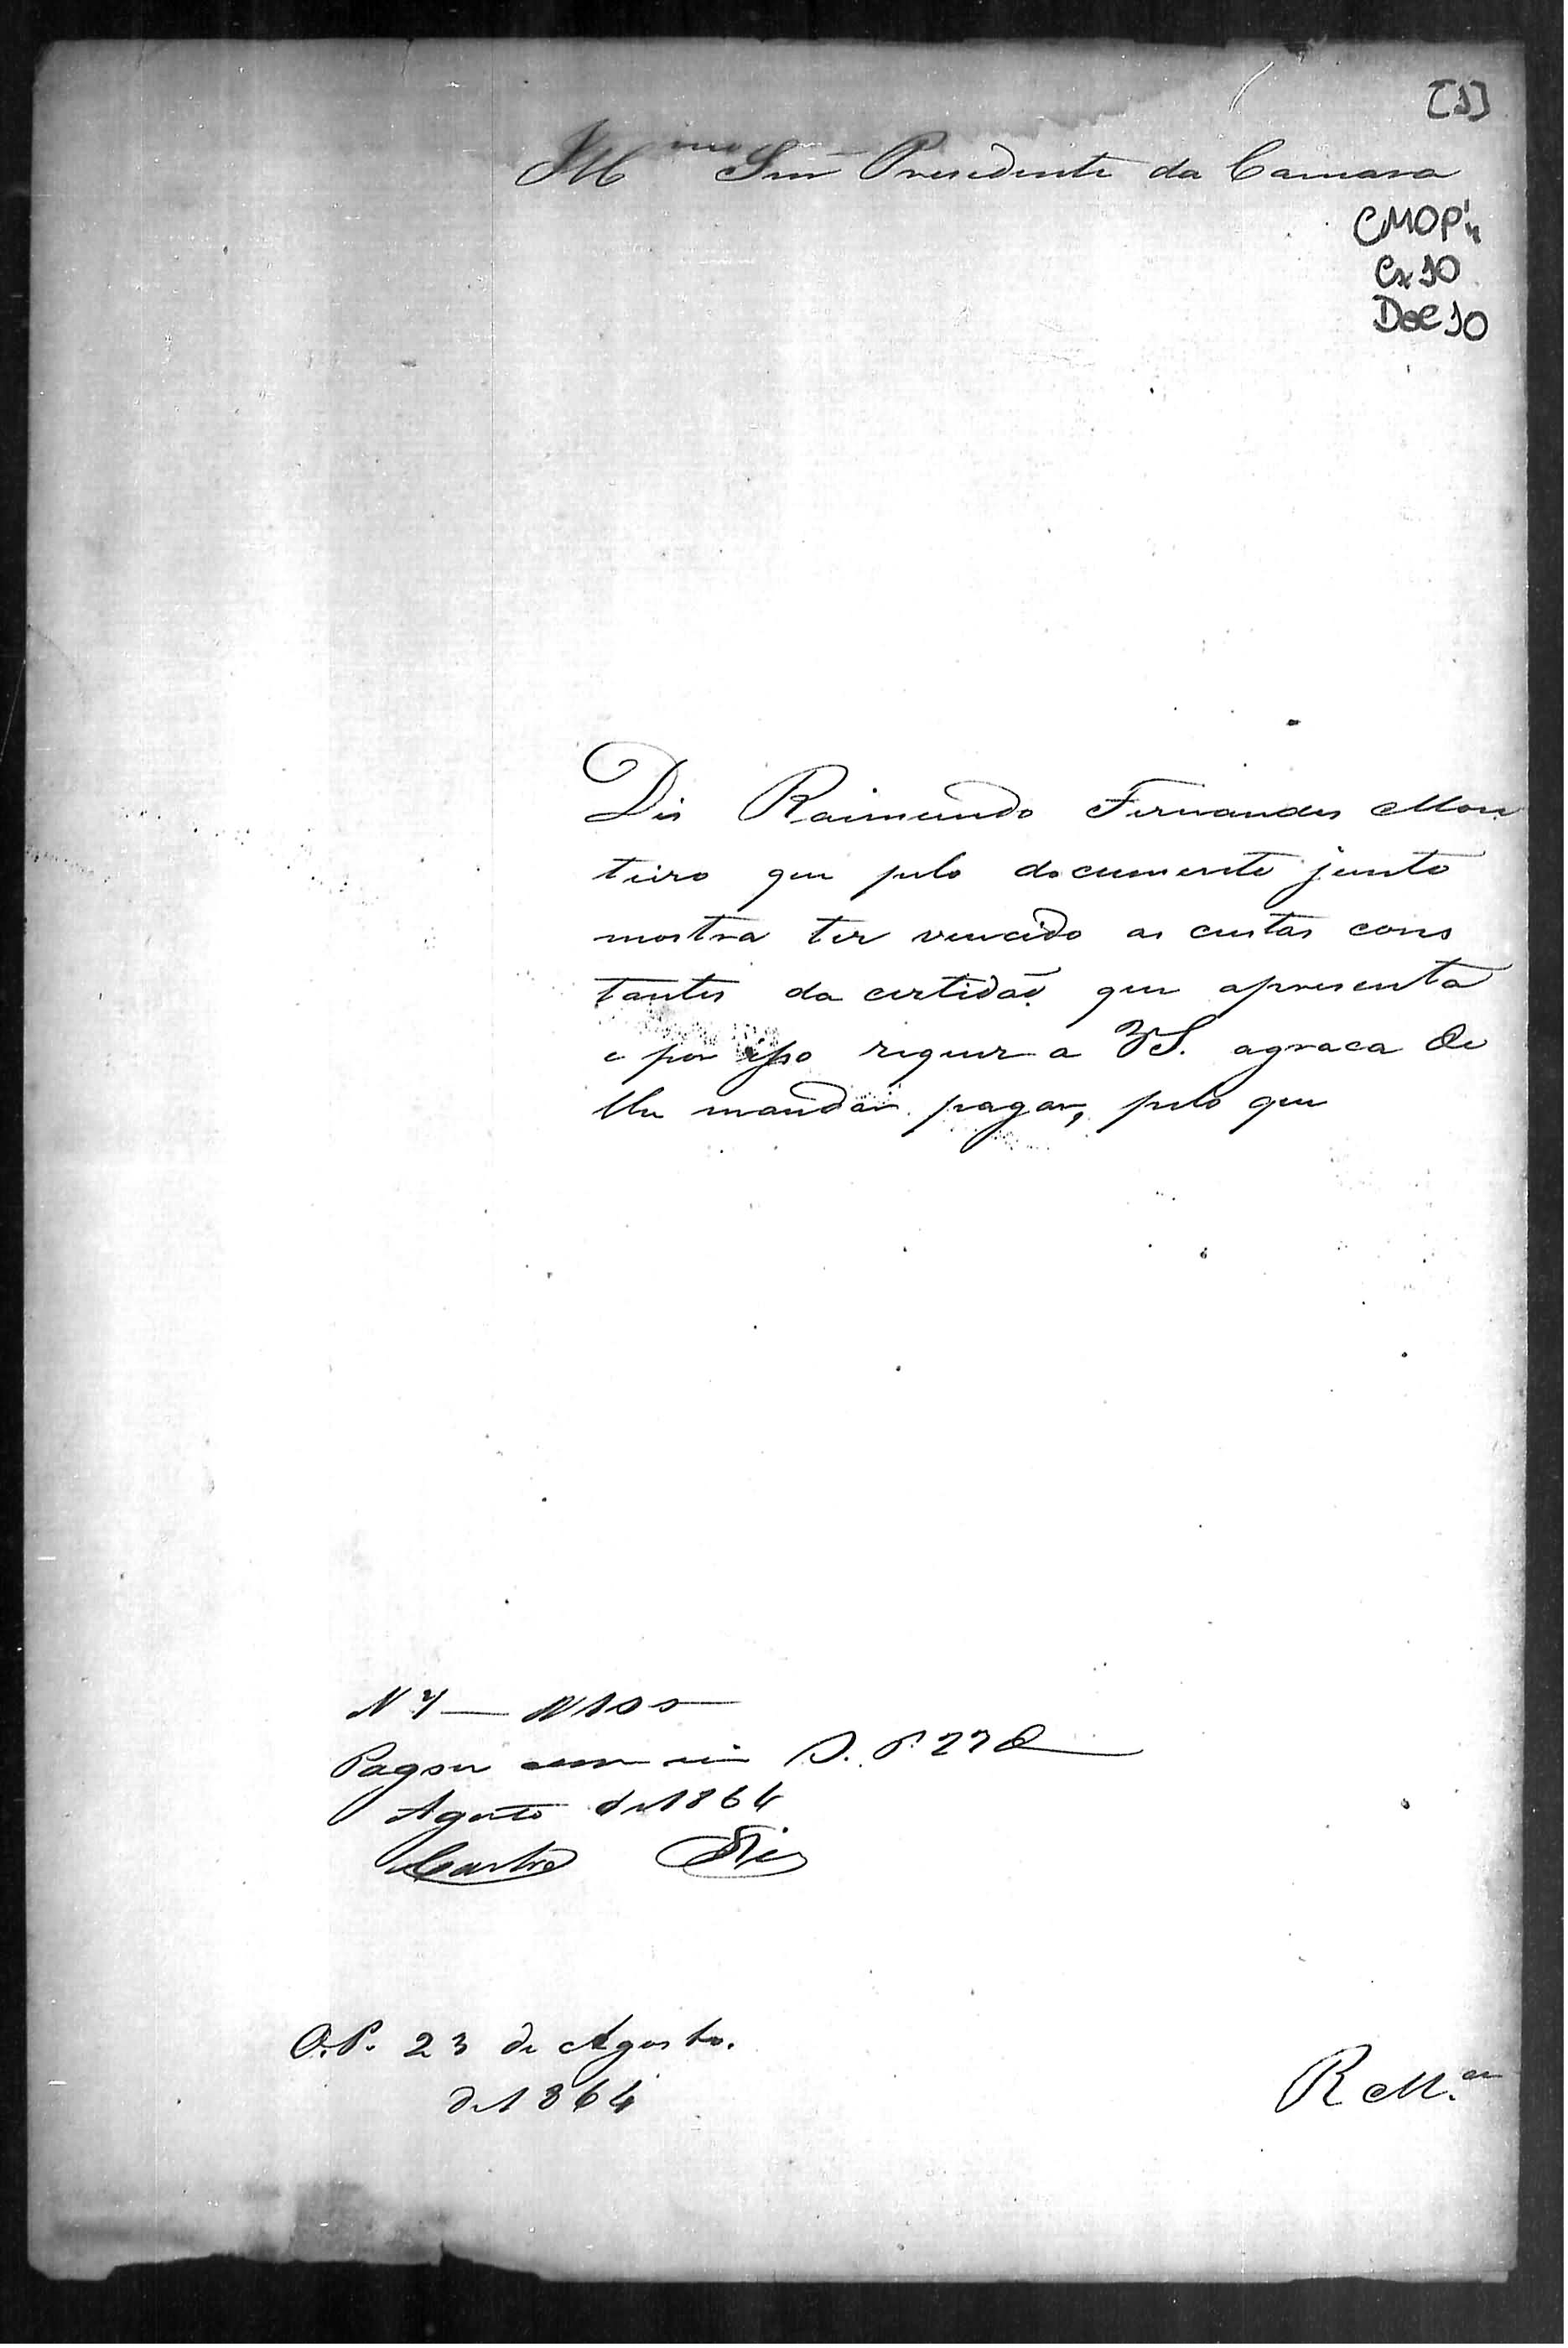 [1]
Ill mo Snr Presidente da Camara
CMOP
Cx 10
Doc 10
Dis Raimundo Fernandes Mon
teiro que pelo documento junto
mostra ter vencido as custas cons
tantes da certidaõ que apresenta
e por isso requer a VS. agraca de
lhe mandar pagar, pelo que
Pagou
Agosto de 1864
Castro
O.P. 23 de Agosto.
de 1864
R M.ce